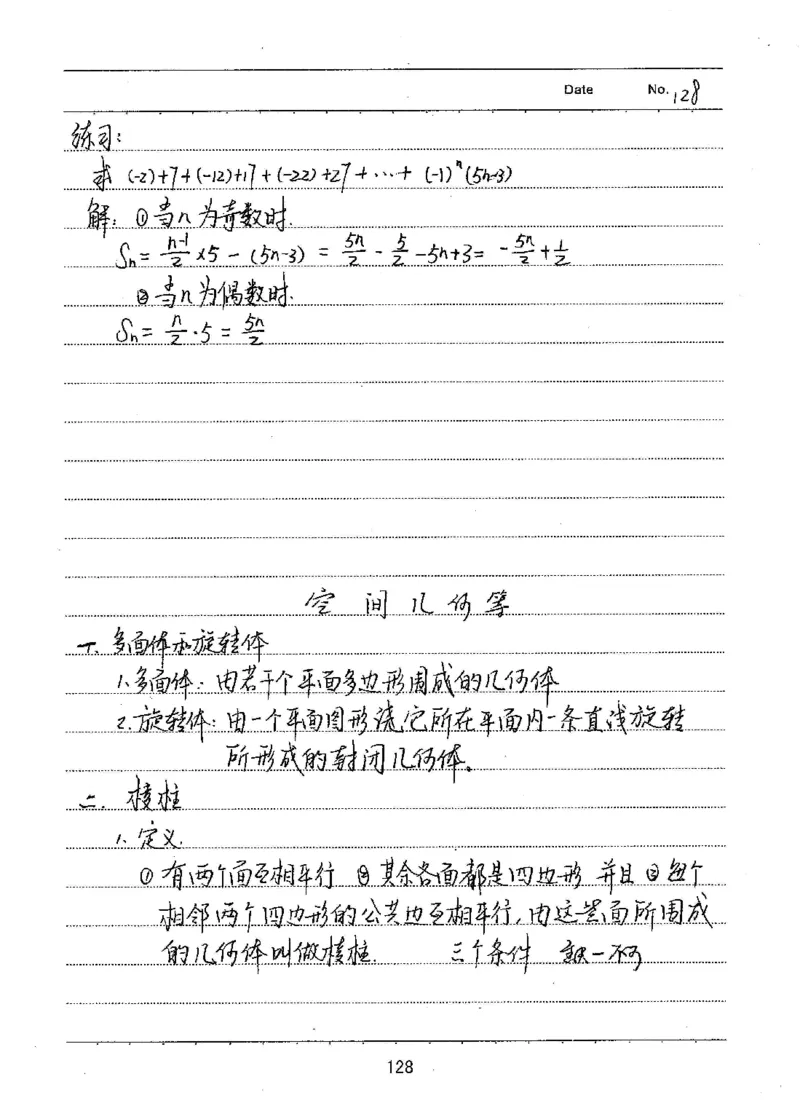 Date No. 128
练习:
求 (-2)+7+(-12)+17+(-22)+27+…+ (-1)ⁿ(5n-3)
解: ①当n为奇数时.
Sn= n-1/2 ×5 - (5n-3) = 5n/2 - 5/2 -5n+3= - 5n/2 + 1/2
②当n为偶数时.
Sn= n/2 ·5 = 5n/2
空间几何等
一. 多面体和旋转体
1.多面体: 由若干个平面多边形围成的几何体
2.旋转体: 由一个平面图形绕它所在平面内一条直线旋转
所形成的封闭几何体。
二. 棱柱
1.定义.
①有两个面互相平行 ②其余各面都是四边形 并且 ③每个
相邻两个四边形的公共边互相平行,由这些面所围成
的几何体叫做棱柱. 三个条件 缺一不可
128